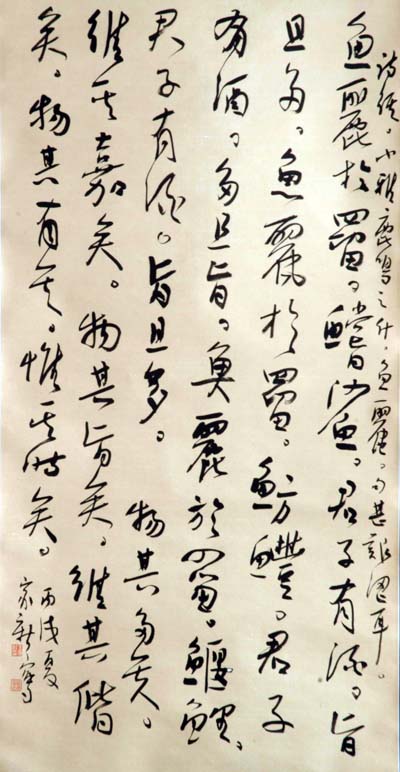 詩經。小雅。鹿鳴之什。魚麗。
魚麗於罶。鱨鯊。君子有酒。旨
且多。魚麗於罶。魴鱧。君子
有酒。多且旨。魚麗於罶。鰋鯉。
君子有酒。旨且多。物其多矣。
維其嘉矣。物其旨矣。維其偕
矣。物其有矣。惟其時矣。
丙戌夏
家新寫